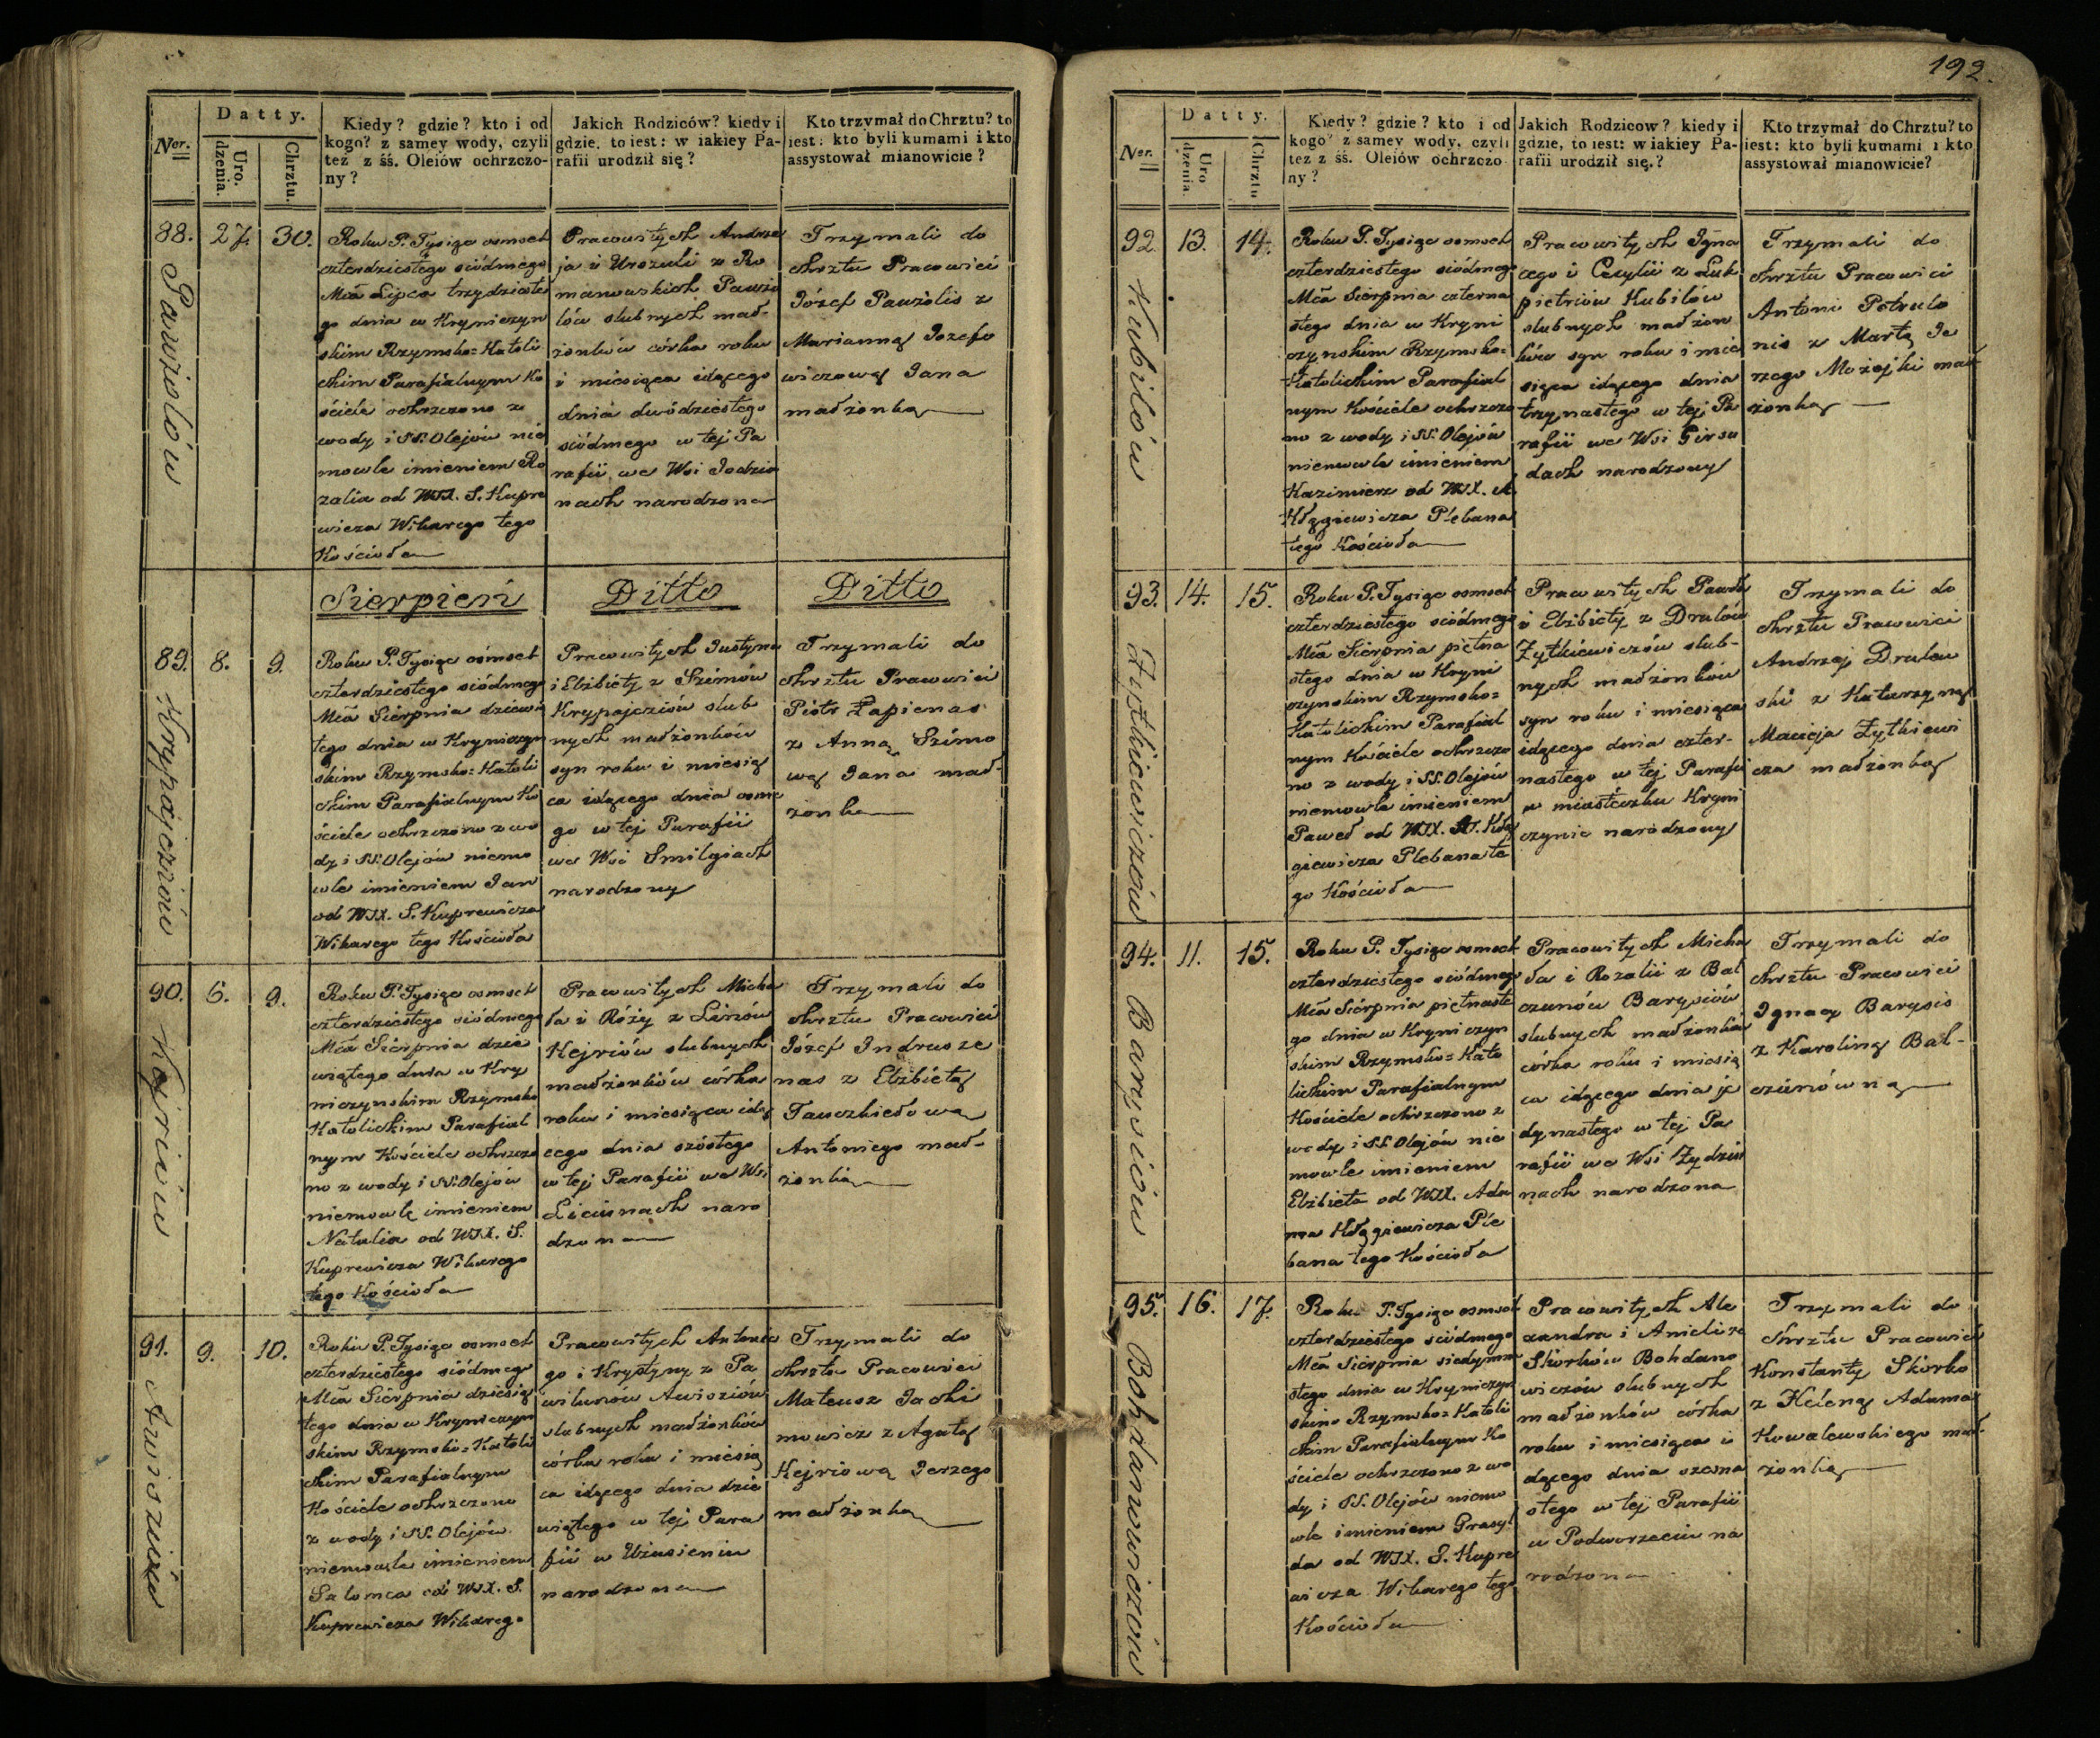 Ner.
Datty.
Uro.
dzenia.
Chrztu.
Kiedy? gdzie? kto i od
kogo? z samey wody, czyli
też z śś. Oleiów ochrzczo-
ny?
Jakich Rodziców? kiedy i
gdzie, to iest: w iakiey Pa-
rafii urodził się?
Kto trzymał do Chrztu? to
iest: kto byli kumami i kto
assystował mianowicie?
88. 27. 30.
Pawżolów
Roku P. Tysiąc osmset
czterdziestego siódmego
Mca Lipca trzydzieste
go dnia w Kryniczyn
skim Rzymsko=Katoli
ckim Parafialnym Ko
ściele ochrzczono z
wody i SS. Olejów nie
mowle imieniem Ro
zalia od WJX. S. Kupre
wicza Wikarego tego
Kościoła
Pracowitych Andrze
ja i Urszuli z Ro
manowskich Pawżo
lów slubnych mał-
żonków córka roku
i miesiąca idącego
dnia dwódziestego
siódmego w tej Pa
rafii we Wsi Jodzio
nach narodzona
Trzymali do
chrztu Pracowici
Józef Pawżolis z
Marianną Jozefo
wiczową Jana
małżonką
Sierpień
Ditto
Ditto
89. 8. 9.
Krypajcziów
Roku P. Tysiąc osmset
czterdziestego siódmego
Mca Sierpnia dziewią
tego dnia w Kryniczyn
skim Rzymsko=Katoli
ckim Parafialnym Ko
ściele ochrzczono z wo
dy i SS. Olejów niemo
wle imieniem Jan
od WJX. S. Kuprewicza
Wikarego tego Kościoła
Pracowitych Justyna
i Elżbiety z Szimów
Krypajcziów slub
nych małżonków
syn roku i miesią
ca idącego dnia osme
go w tej Parafii
we Wsi Smilgiach
narodzony
Trzymali do
chrztu Pracowici
Piotr Łapienas
z Anną Szimo
wą Jana mał-
żonką
90. 6. 9.
Kejriów
Roku P. Tysiąc osmset
czterdziestego siódmego
Mca Sierpnia dzie
wiątego dnia w Kry
niczynskim Rzymsko
Katolickim Parafial
nym Kościele ochrzczo
no z wody i SS. Olejów
niemowlę imieniem
Natalia od WJX. S.
Kuprewicza Wikarego
tego Kościoła
Pracowitych Micha
ła i Róży z Linów
Kejriów slubnych
małżonków córka
roku i miesiąca idą
cego dnia szóstego
w tej Parafii we Wsi
Liciunach naro
dzona
Trzymali do
chrztu Pracowici
Józef Indrusze
nas z Elżbietą
Tauczkiełową
Antoniego mał-
żonką
91. 9. 10.
Awiziów
Roku P. Tysiąc osmset
czterdziestego siódmego
Mca Sierpnia dziesią
tego dnia w Kryniczyn
skim Rzymsko=Katoli
ckim Parafialnym
Kościele ochrzczono
z wody i SS. Olejów
niemowle imieniem
Salomea od WJX. S.
Kuprewicza Wikarego
Pracowitych Antonie
go i Krystyny z Pa
wilunów Awiziów
slubnych małżonków
córka roku i miesią
ca idącego dnia dzie
wiątego w tej Para
fii w Użusieniu
narodzona
Trzymali do
chrztu Pracowici
Mateusz Jachi
mowicz z Agatą
Kejriową Jerzego
małżonką
192.
Ner.
Datty.
Uro
dzenia.
Chrztu
Kiedy? gdzie? kto i od
kogo? z samey wody, czyli
też z śś. Oleiów ochrzczo
ny?
Jakich Rodzicow? kiedy i
gdzie, to iest: w iakiey Pa-
rafii urodził się.?
Kto trzymał do Chrztu? to
iest: kto byli kumami i kto
assystował mianowicie?
92. 13. 14.
Kubilów
Roku P. Tysiąc osmset
czterdziestego siódmego
Mca Sierpnia czterna
stego dnia w Kryni
czynskim Rzymsko=
Katolickim Parafial
nym Kościele ochrzczo
no z wody i SS. Olejów
niemowle imieniem
Kazimierz od WJX. A.
Kłągiewicza Plebana
tego Kościoła
Pracowitych Igna
cego i Cecylii z Łuk
pietriów Kubilów
slubnych małżon
ków syn roku i mie
siąca idącego dnia
trzynastego w tej Pa
rafii we Wsi Girsu
dach narodzony
Trzymali do
chrztu Pracowici
Antoni Petrulo
nis z Martą Je
rzego Możejki mał
żonką
93. 14. 15.
Żytkiewiczów
Roku P. Tysiąc osmset
czterdziestego siódmego
Mca Sierpnia pietna
stego dnia w Kryni
czynskim Rzymsko=
Katolickim Parafial
nym Kościele ochrzczo
no z wody i SS. Olejów
niemowle imieniem
Paweł od WJX. A. Kłą
giewicza Plebana te
go Kościoła
Pracowitych Pawła
i Elżbiety z Drulów
Żytkiewiczów slub-
nych małżonków
syn roku i miesiąca
idącego dnia czter-
nastego w tej Parafii
w miasteczku Kryni
czynie narodzony
Trzymali do
chrztu Pracowici
Andrzej Drulew
ski z Katarzyną
Macieja Żytkiewi
cza małżonką
94. 11. 15.
Barysiów
Roku P. Tysiąc osmset
czterdziestego siódmego
Mca Sierpnia piętnaste
go dnia w Kryniczyn
skim Rzymsko=Kato
lickim Parafialnym
Kościele ochrzczono z
wody i SS. Olejów nie
mowle imieniem
Elżbieta od WJX. Ada
ma Kłągiewicza Ple
bana tego Kościoła
Pracowitych Micha
ła i Rozalii z Bał
czunów Barysiów
slubnych małżonków
córka roku i miesią
ca idącego dnia je
dynastego w tej Pa
rafii we Wsi Żydziu
nach narodzona
Trzymali do
chrztu Pracowici
Ignacy Barysis
z Karoliną Bał-
cziunówną
95. 16. 17.
Bohdanowiczów
Roku P. Tysiąc osmset
czterdziestego siódmego
Mca Sierpnia siedymna
stego dnia w Kryniczyn
skim Rzymsko=Katoli
ckim Parafialnym Ko
ściele ochrzczono z wo
dy i SS. Olejów niemo
wle imieniem Prasyl
da od WJX. S. Kupre
wicza Wikarego tego
Kościoła
Pracowitych Ale
xandra i Anieli z
Skorków Bohdano
wiczów slubnych
małżonków córka
roku i miesiąca i
dącego dnia szesna
stego w tej Parafii
w Podworzeciu na
rodzona
Trzymali do
chrztu Pracowici
Konstanty Skorko
z Heleną Adama
Kowalewskiego mał-
żonką